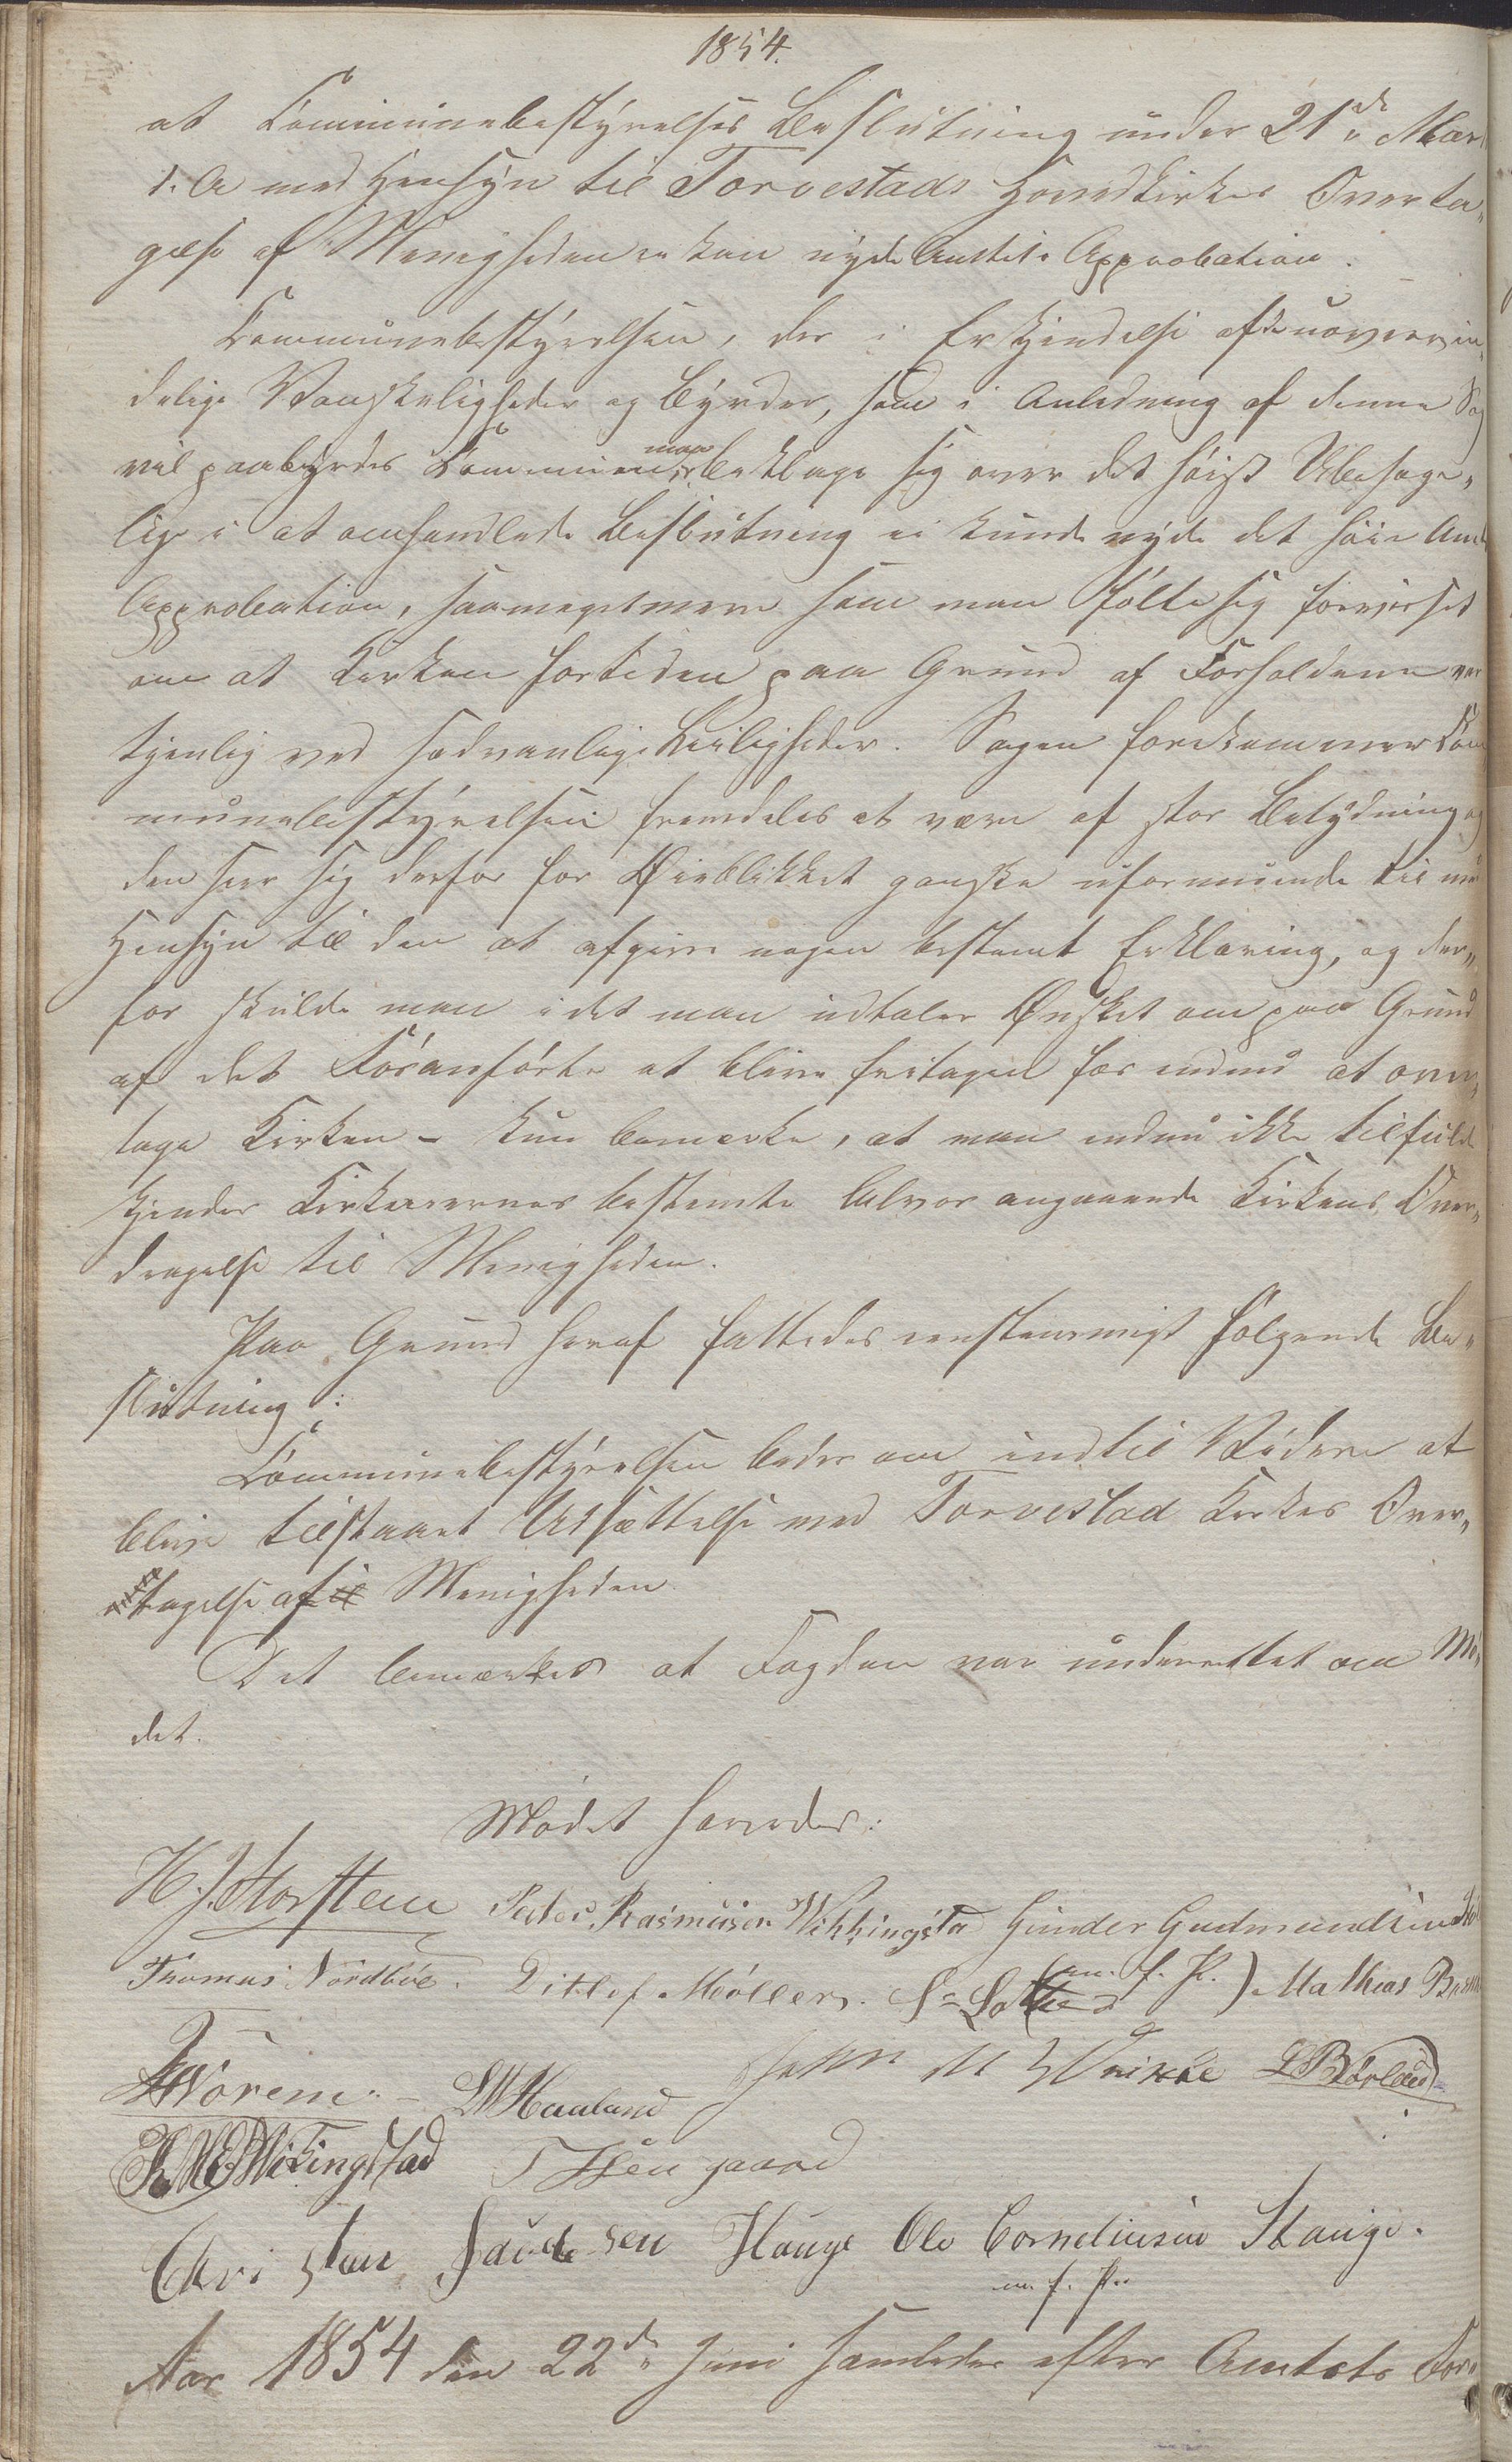 1854.
at Communebestyrelses Beslutning under 21de Mar
d. A med Hensyn til Torvestads Hovedkirkes Overta„
gelse af Menigheden ei kan nyde Amtets Approbation.
Communebestyrelsen, der i Erkjendelse af de uovervin„
delige Vanskeligheder og Byrder, som i Anledning af denne Sag
vil paabyrdes Communen, maa beklage sig over det høist Ubehage„
lige i at omhandlede Beslutning ei kunde nyde det høie Amts
Approbation, saameget mere som man følte sig forvisset
om at Kirken fortiden paa Grund af Forholdene var
tjenlig ved sædvanlige Leiligheder. Sagen forekommer Com
munebestyrelsen fremdeles at være af stor Betydning og
den seer sig derfor for Øieblikket ganske uformuende til med
Hensyn til den at afgive nogen bestemt Erklæring, og der„
for skulde man idet man udtaler Ønsket om paa Grund
af det Foranførte at blive fritagen for endnu at over„
tage Kirken – kun bemærke, at man endnu ikke tilfulde
kjender Kirkeeiernes bestemte Alvor angaaende Kirkens Over„
dragelse til Menigheden.
Paa Grund heraf fattedes eenstemmigt følgende Be„
slutning:
Communebestyrelsen beder om indtil Videre at
blive tilstaaet Udsættelse med Torvestad Kirkes Over„
tagelse af Menigheden
Det bemærkes at Fogden var underrettet om Mø„
det.
Mødet hævedes.
H. J. Storsteen Peder Rasmusen Wikkingsta Gunder Gudmundsen
Thomas Nordbøe. Ditlef Møller. (m. f. P.) Mathias
Worem. – Haaland L Børland
Wikingstad
Christen Knudsen Hauge Ole Corneliusen Stange.
m. f. P.
Aar 1854 den 22de Juni samledes efter Amtets For„